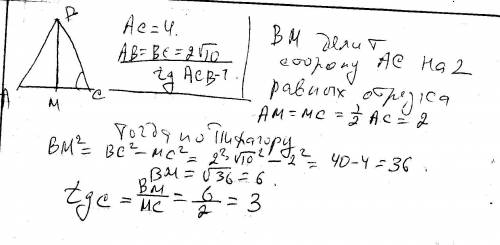 B
A
M
C
AC = 4.
AB = BC = 2√10
tg ACB - ?
BM делит
сторону AC на 2
равных отрезка
AM = MC = 1/2 AC = 2
Тогда по Пифагору
BM² = BC² - MC² = 2²·√10² - 2² = 40 - 4 = 36.
BM = √36 = 6.
tg C = BM/MC = 6/2 = 3